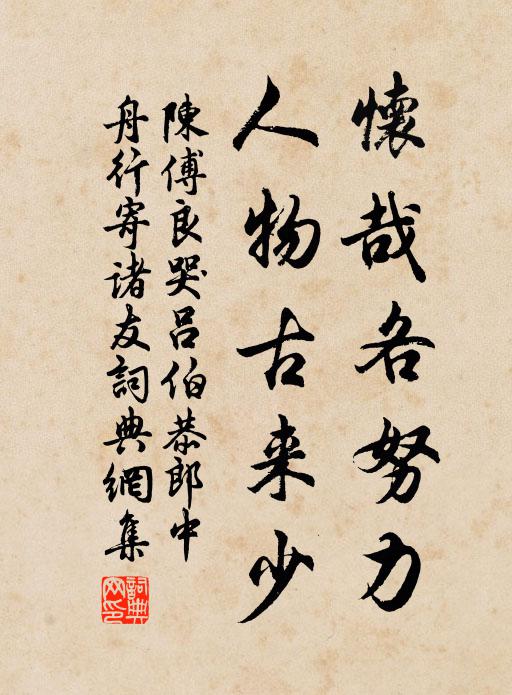 懷哉各努力
人物古来少
陳傅良哭呂伯恭郎中
舟行寄諸友詞典網集
詞典
网印